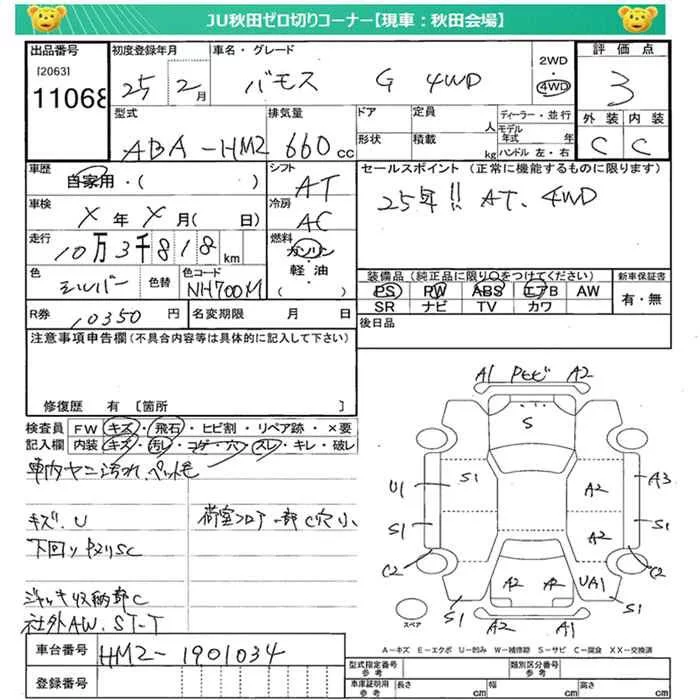 JU秋田ゼロ切りコーナー【現車：秋田会場】
出品番号
[2063]
11068
初度登録年月
25 2月
車名・グレード
バモス G 4WD
2WD
4WD
評価点
3
外装 内装
C C
型式
ABA-HM2
排気量
660cc
ドア
形状
定員 人
積載 kg
ディーラー・並行
モデル年式 年
ハンドル 左・右
車歴
自家用・( )
シフト
AT
セールスポイント (正常に機能するものに限ります)
25年!! AT、4WD
車検
X年 X月( 日)
冷房
AC
走行
10万3千818km
燃料
ガソリン
軽・油
( )
色
シルバー
色替
色コード
NH700M
装備品 (純正品に限り○をつけてください)
PS PW ABS エアB AW
SR ナビ TV カワ
新車保証書
有・無
R券 10350円
名変期限 月 日
後日品
注意事項申告欄 (不具合内容等は具体的に記入して下さい)
修復歴 有 [箇所 ]
検査員記入欄
FW キズ・飛石・ヒビ割・リペア跡・×要
内装 キズ・汚レ・コゲ・穴・スレ・キレ・破レ
車内ヤニ汚れ、ペット毛
キズ、U
荷室フロアー部C穴小
下回りサビSC
ジャッキ収納部C
社外AW、ST-T
A1 Pヒビ A2
S
U1 S1 A2 A3
S1 A2 S1
C2 A2 A2 UA1 C2
S1 A2 A1 S1
スペア
A－キズ E－エクボ U－凹み W－補修跡 S－サビ C－腐食 XX－交換済
車台番号
HM2-1901034
登録番号
型式指定番号 参考
類別区分番号 参考
車庫証明用 参考
長さ cm 幅 cm 高さ cm